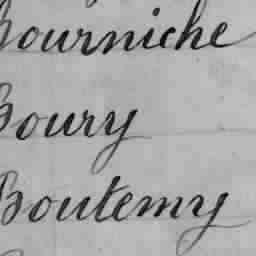 Bourniche
Boury
Boutemy